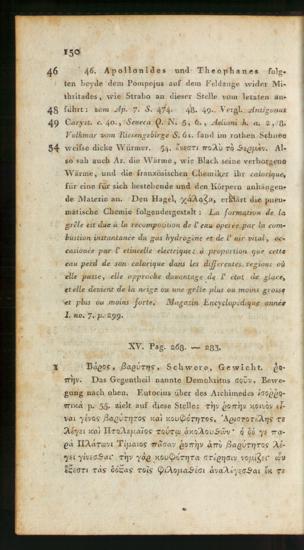 150
46 46. Apollonides und Theophanes folg-
ten beyde dem Pompejus auf dem Feldzuge wider Mi-
thridates, wie Strabo an dieser Stelle vom letzten an-
48 führt: vom Ap. 7. S. 474. 48. 49. Vergl. Antigonus
49 Caryst. c. 40., Seneca Q. N. 5, 6., Aeliani h. a. 2,
Volkmar vom Riesengebirge S. 61. fand im rothen Schnee
54 weisse dicke Würmer. 54. ἔνεστι πολὺ τὸ θερμόν. Al-
so sah auch Ar. die Wärme, wie Black seine verborgene
Wärme, und die französischen Chemiker ihr calorique,
für eine für sich bestehende und den Körpern anhängen-
de Materie an. Den Hagel, χάλαζα, erklärt die pneu-
matische Chemie folgendergestalt: La formation de la
grêle est due à la recomposition de l'eau operée par la com-
bustion instantanée du gaz hydrogine et de l'air vital, oc-
casionée par l'etincelle electrique: à proportion que cette
eau perd de son calorique dans les differentes regions où
elle passe, elle approche davantage de l'etat de glace,
et elle devient de la neige ou une grêle plus ou moins grosse
et plus ou moins forte. Magazin Encyclopédique année
I. no. 7. p. 299.
XV. Pag. 268. — 283.
1 Βάρος, βαρύτης, Schwere, Gewicht. ῥο-
πήν. Das Gegentheil nannte Demokritus σοῦν, Bewe-
gung nach oben. Eutocius über des Archimedes ἰσοῤῥο-
πικά p. 55. zielt auf diese Stelle: τὴν ῥοπὴν κοινὸν εἶ-
ναι γένος βαρύτητος καὶ κουφότητος, Ἀριστοτέλης τε
λέγει καὶ Πτολεμαῖος τούτῳ ἀκολουθῶν· ὁ δὲ γε πα-
ρὰ Πλάτωνι Τίμαιος πᾶσαν ῥοπὴν ἀπὸ βαρύτητος λέ-
γει γίνεσθαι· τὴν γὰρ κουφότητα στέρησιν νομίζει· ὧν
ἔξεστι τὰς δόξας τοῖς φιλομαθέσι ἀναλέγεσθαι ἔκ τε